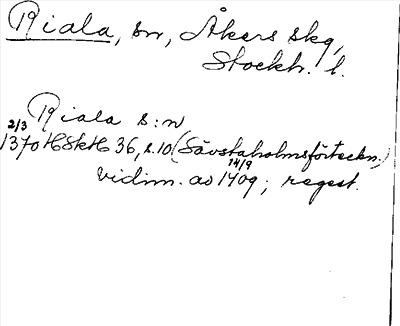 Riala, sn, Åkers skg,
Stockh. l.
Riala s:n
2/3
1370 HSkH 36, s.10 (Sävstaholmsförteckn.)
14/9
vidim. av 1409; regest.